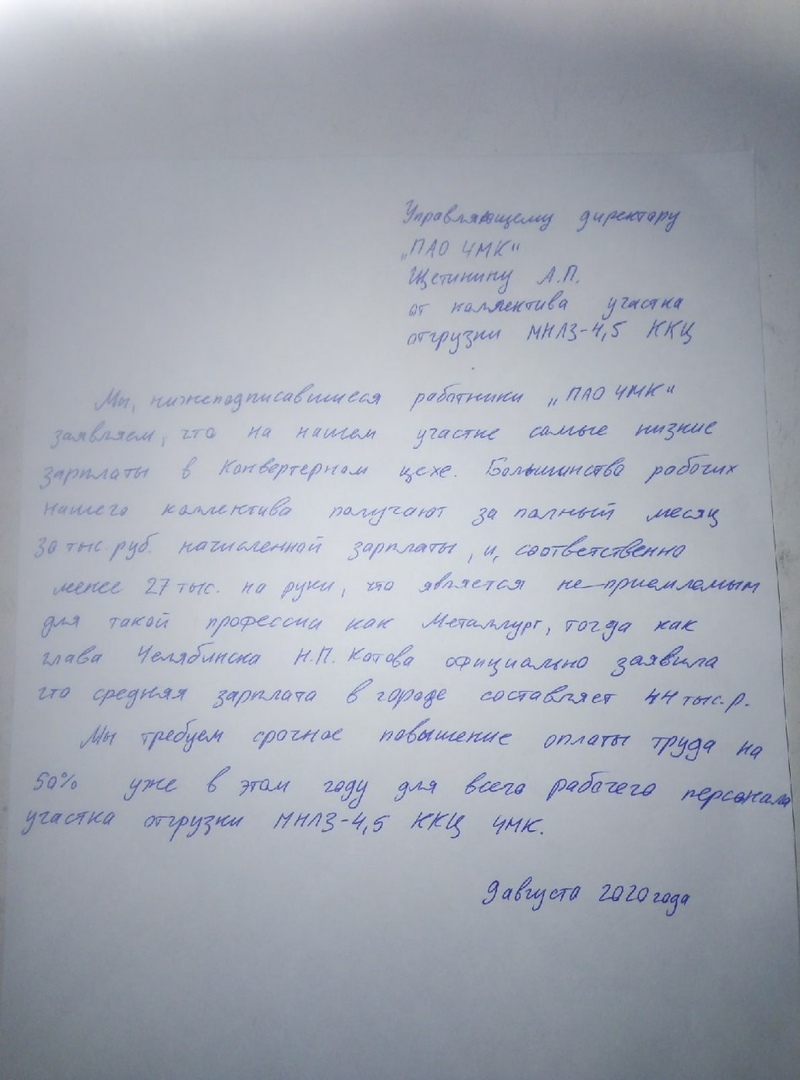 Управляющему директору
„ПАО ЧМК"
Щетинину А.П.
от коллектива участка
отгрузки МНЛЗ-4,5 ККЦ
Мы, нижеподписавшиеся работники „ПАО ЧМК"
заявляем, что на нашем участке самые низкие
зарплаты в Конвертерном цехе. Большинство рабочих
нашего коллектива получают за полный месяц
30 тыс. руб. начисленной зарплаты, и, соответственно
менее 27 тыс. на руки, что является не-приемлемым
для такой профессии как Металлург, тогда как
глава Челябинска Н.П. Котова официально заявила
что средняя зарплата в городе составляет 44 тыс.р.
Мы требуем срочное повышение оплаты труда на
50% уже в этом году для всего рабочего персонала
участка отгрузки МНЛЗ-4,5 ККЦ ЧМК.
9 августа 2020 года